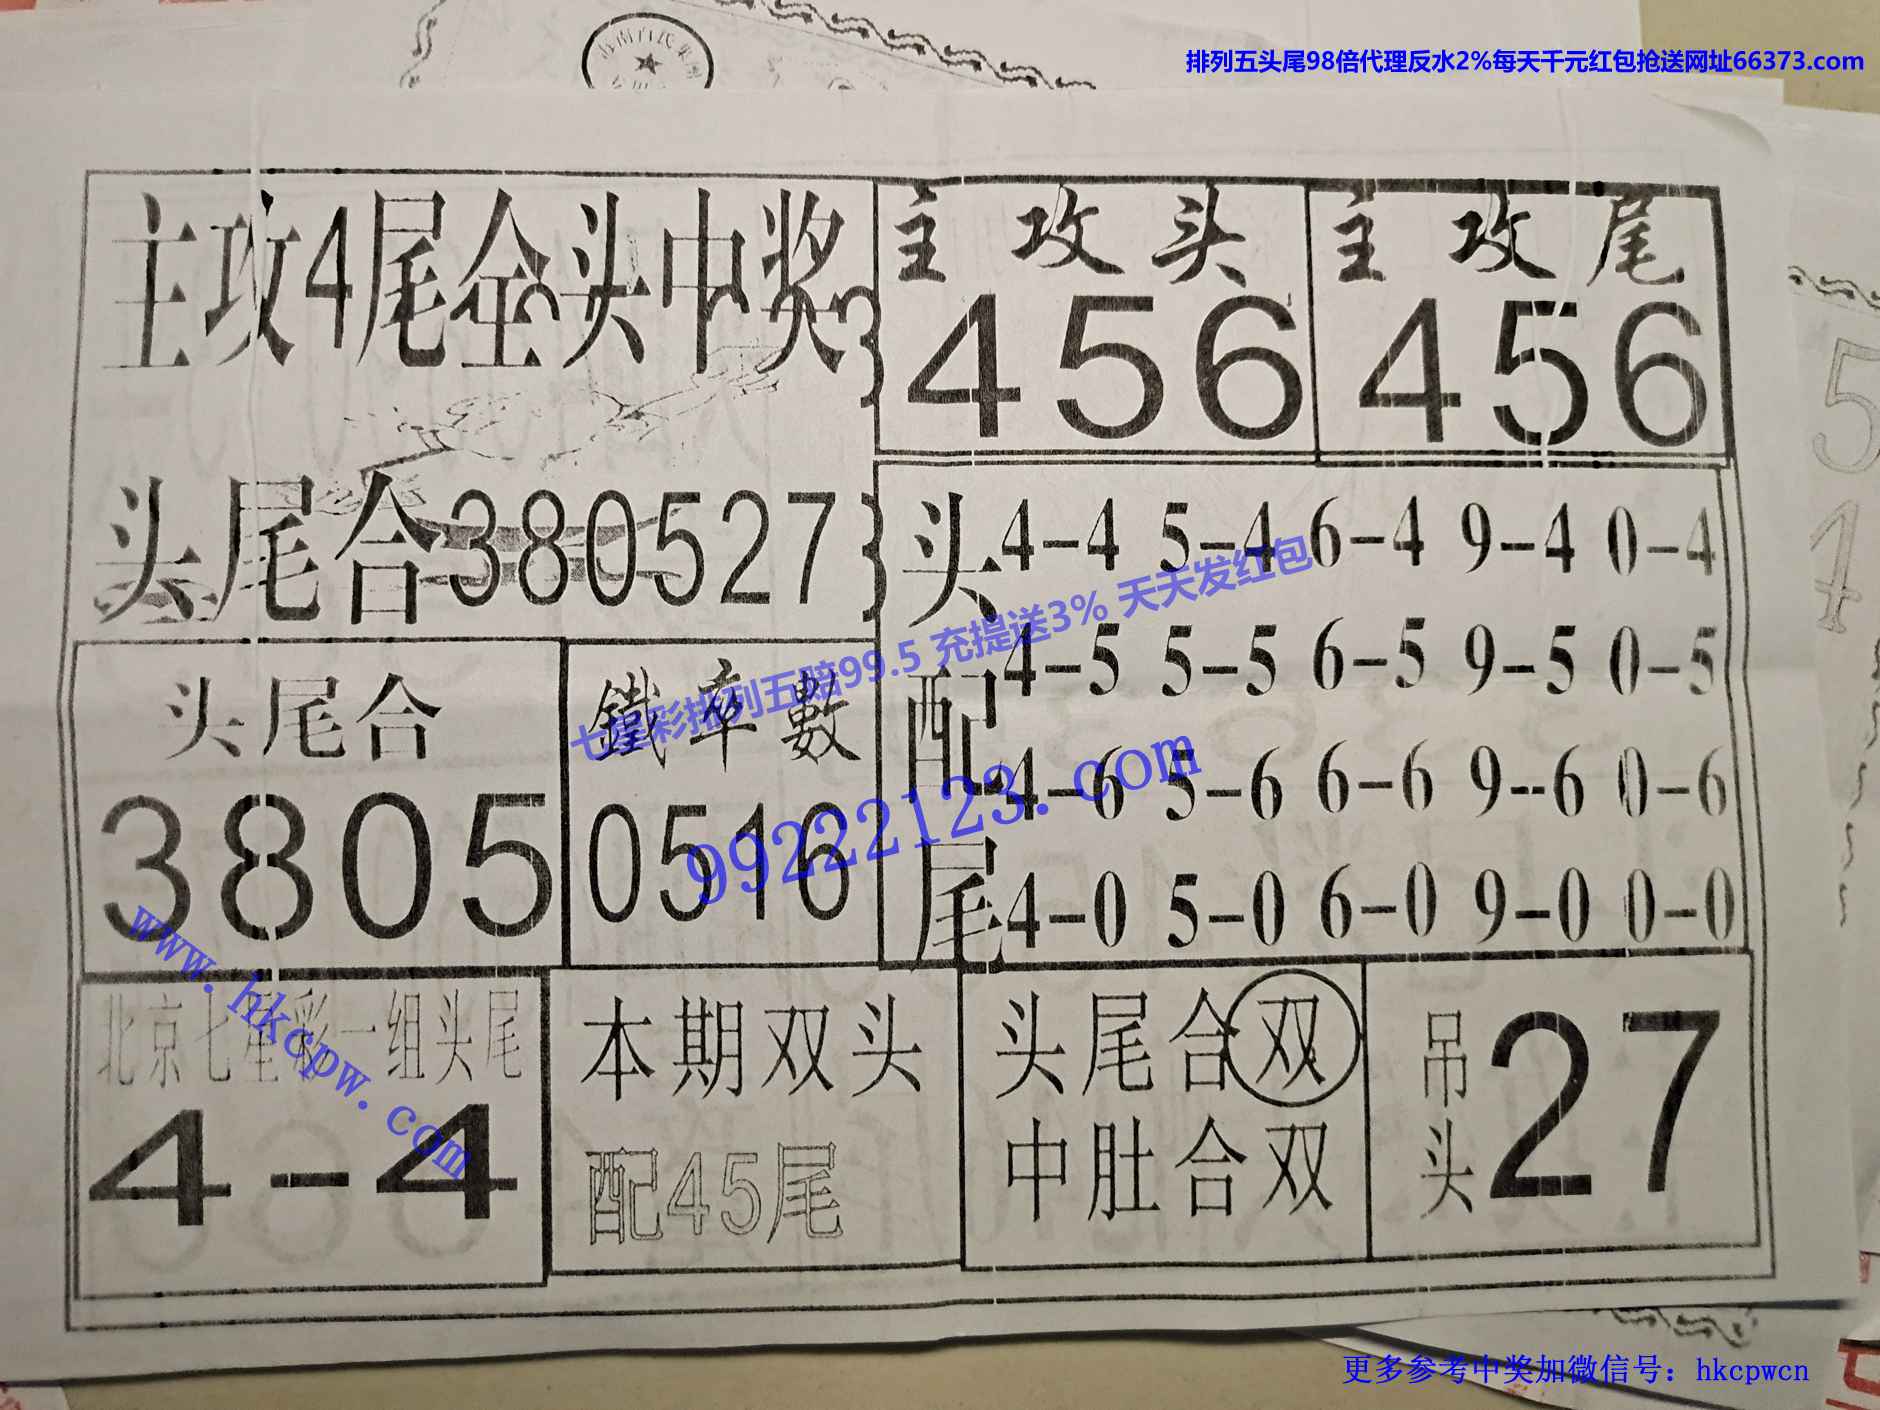 排列五头尾98倍代理反水2%每天千元红包抢送网址66373.com
主攻4尾全头中奖
头尾合380527
主攻头
456
主攻尾
456
头配尾
4-4 5-4 6-4 9-4 0-4
4-5 5-5 6-5 9-5 0-5
4-6 5-6 6-6 9--6 0-6
4-0 5-0 6-0 9-0 0-0
头尾合
3805
鐵率數
0516
七星彩排列五赔99.5 充提送3% 天天发红包
99222123.com
www.hkcpw.com
北京七星彩一组头尾
4-4
本期双头
配45尾
头尾合双
中肚合双
吊头
27
5
4
更多参考中奖加微信号：hkcpwcn